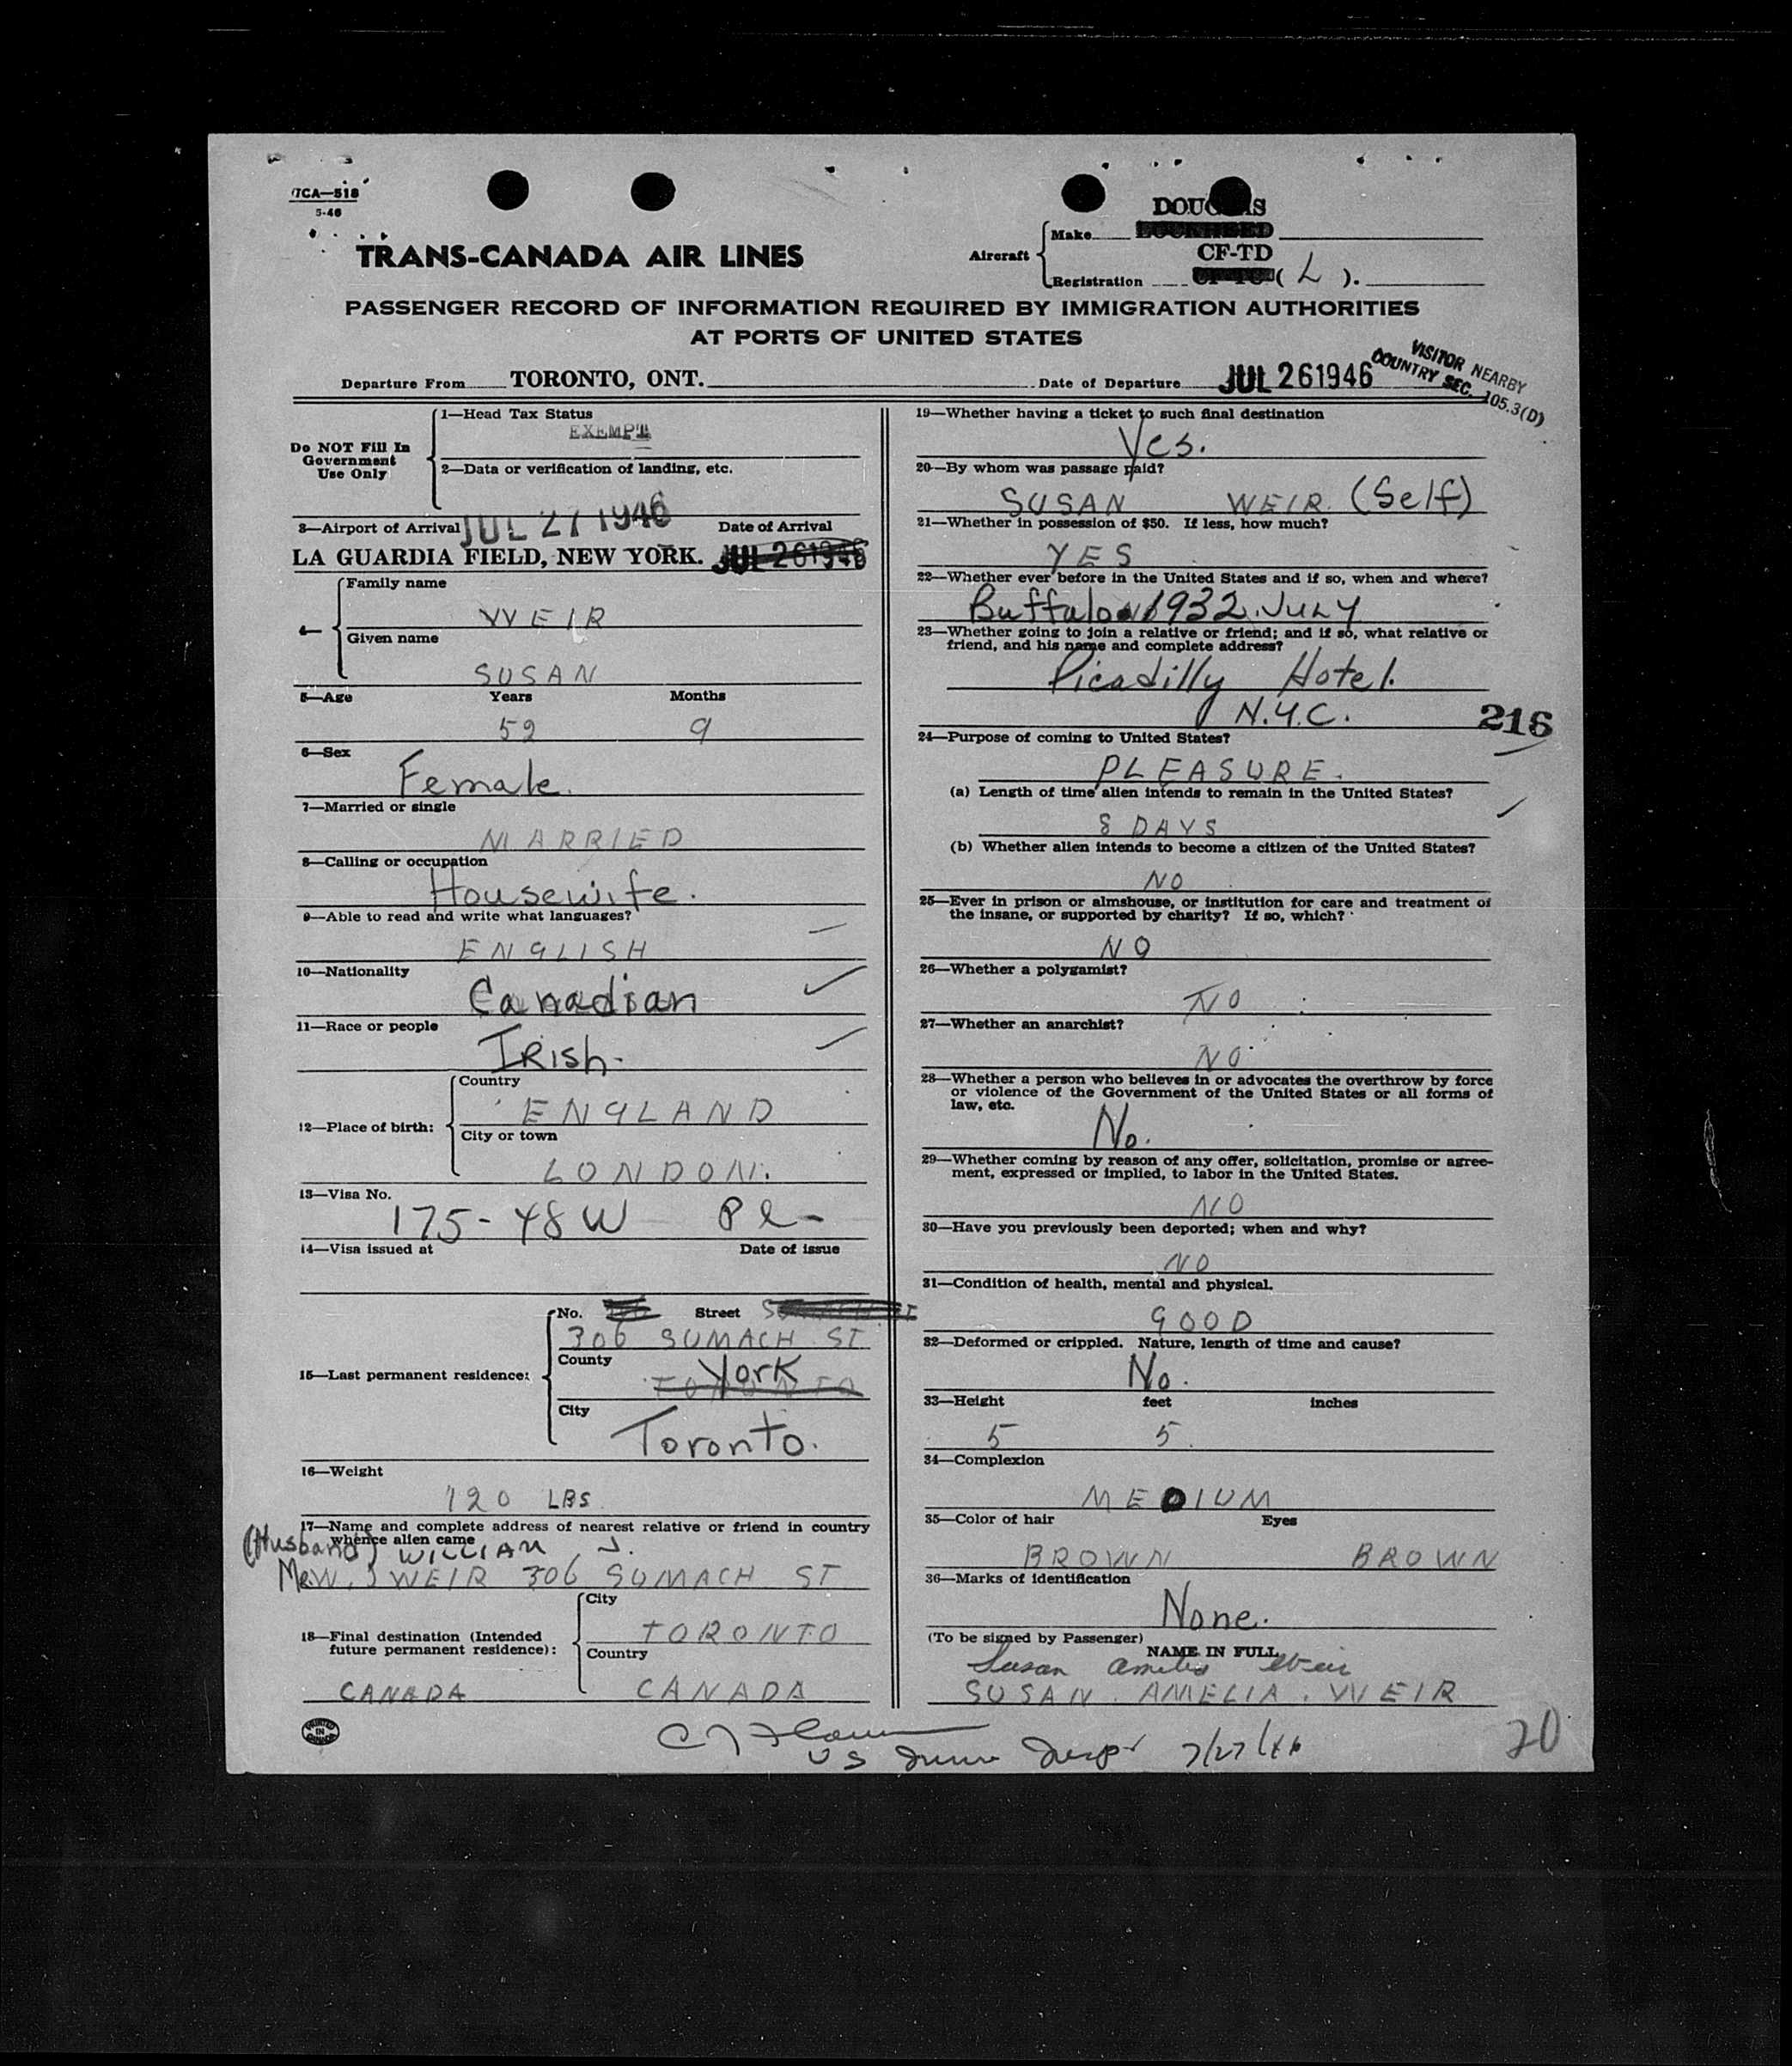 TCA—518
5-46
TRANS-CANADA AIR LINES
Aircraft
Make DOUGLAS
LOCKHEED
CF-TD
Registration ( L ).
PASSENGER RECORD OF INFORMATION REQUIRED BY IMMIGRATION AUTHORITIES
AT PORTS OF UNITED STATES
Departure From TORONTO, ONT. Date of Departure JUL 26 1946
VISITOR NEARBY
COUNTRY SEC. 105.3(D)
Do NOT Fill In
Government
Use Only
1—Head Tax Status
EXEMPT
2—Data or verification of landing, etc.
3—Airport of Arrival JUL 27 1946 Date of Arrival
LA GUARDIA FIELD, NEW YORK. JUL 26 1946
4—
Family name
WEIR
Given name
SUSAN
5—Age Years Months
52 9
6—Sex
Female.
7—Married or single
MARRIED
8—Calling or occupation
Housewife.
9—Able to read and write what languages?
ENGLISH
10—Nationality
Canadian
11—Race or people
IRish.
12—Place of birth:
Country
ENGLAND
City or town
LONDON.
13—Visa No.
175-48W Pl-
14—Visa issued at Date of issue
15—Last permanent residence:
No. Street
306 SUMACH ST
County
York
TORONTO
City
Toronto.
16—Weight
120 LBS
17—Name and complete address of nearest relative or friend in country
whence alien came
(Husband) WILLIAM J.
Mr W. J WEIR 306 SUMACH ST
18—Final destination (Intended
future permanent residence):
City
TORONTO
Country
CANADA CANADA
PRINTED
IN
CANADA
19—Whether having a ticket to such final destination
Yes.
20—By whom was passage paid?
SUSAN WEIR. (Self)
21—Whether in possession of $50. If less, how much?
YES
22—Whether ever before in the United States and if so, when and where?
Buffalo 1932. JULY
23—Whether going to join a relative or friend; and if so, what relative or
friend, and his name and complete address?
Picadilly Hotel.
N.Y.C.
216
24—Purpose of coming to United States?
PLEASURE.
(a) Length of time alien intends to remain in the United States?
8 DAYS
(b) Whether alien intends to become a citizen of the United States?
NO
25—Ever in prison or almshouse, or institution for care and treatment of
the insane, or supported by charity? If so, which?
NO
26—Whether a polygamist?
NO
27—Whether an anarchist?
NO
28—Whether a person who believes in or advocates the overthrow by force
or violence of the Government of the United States or all forms of
law, etc.
No.
29—Whether coming by reason of any offer, solicitation, promise or agree-
ment, expressed or implied, to labor in the United States.
NO
30—Have you previously been deported; when and why?
NO
31—Condition of health, mental and physical.
GOOD
32—Deformed or crippled. Nature, length of time and cause?
No.
33—Height feet inches
5 5
34—Complexion
MEDIUM
35—Color of hair Eyes
BROWN BROWN
36—Marks of identification
None.
(To be signed by Passenger)
NAME IN FULL
Susan Amelia Weir
SUSAN. AMELIA. WEIR
US Imm Insp 7/27/46
20